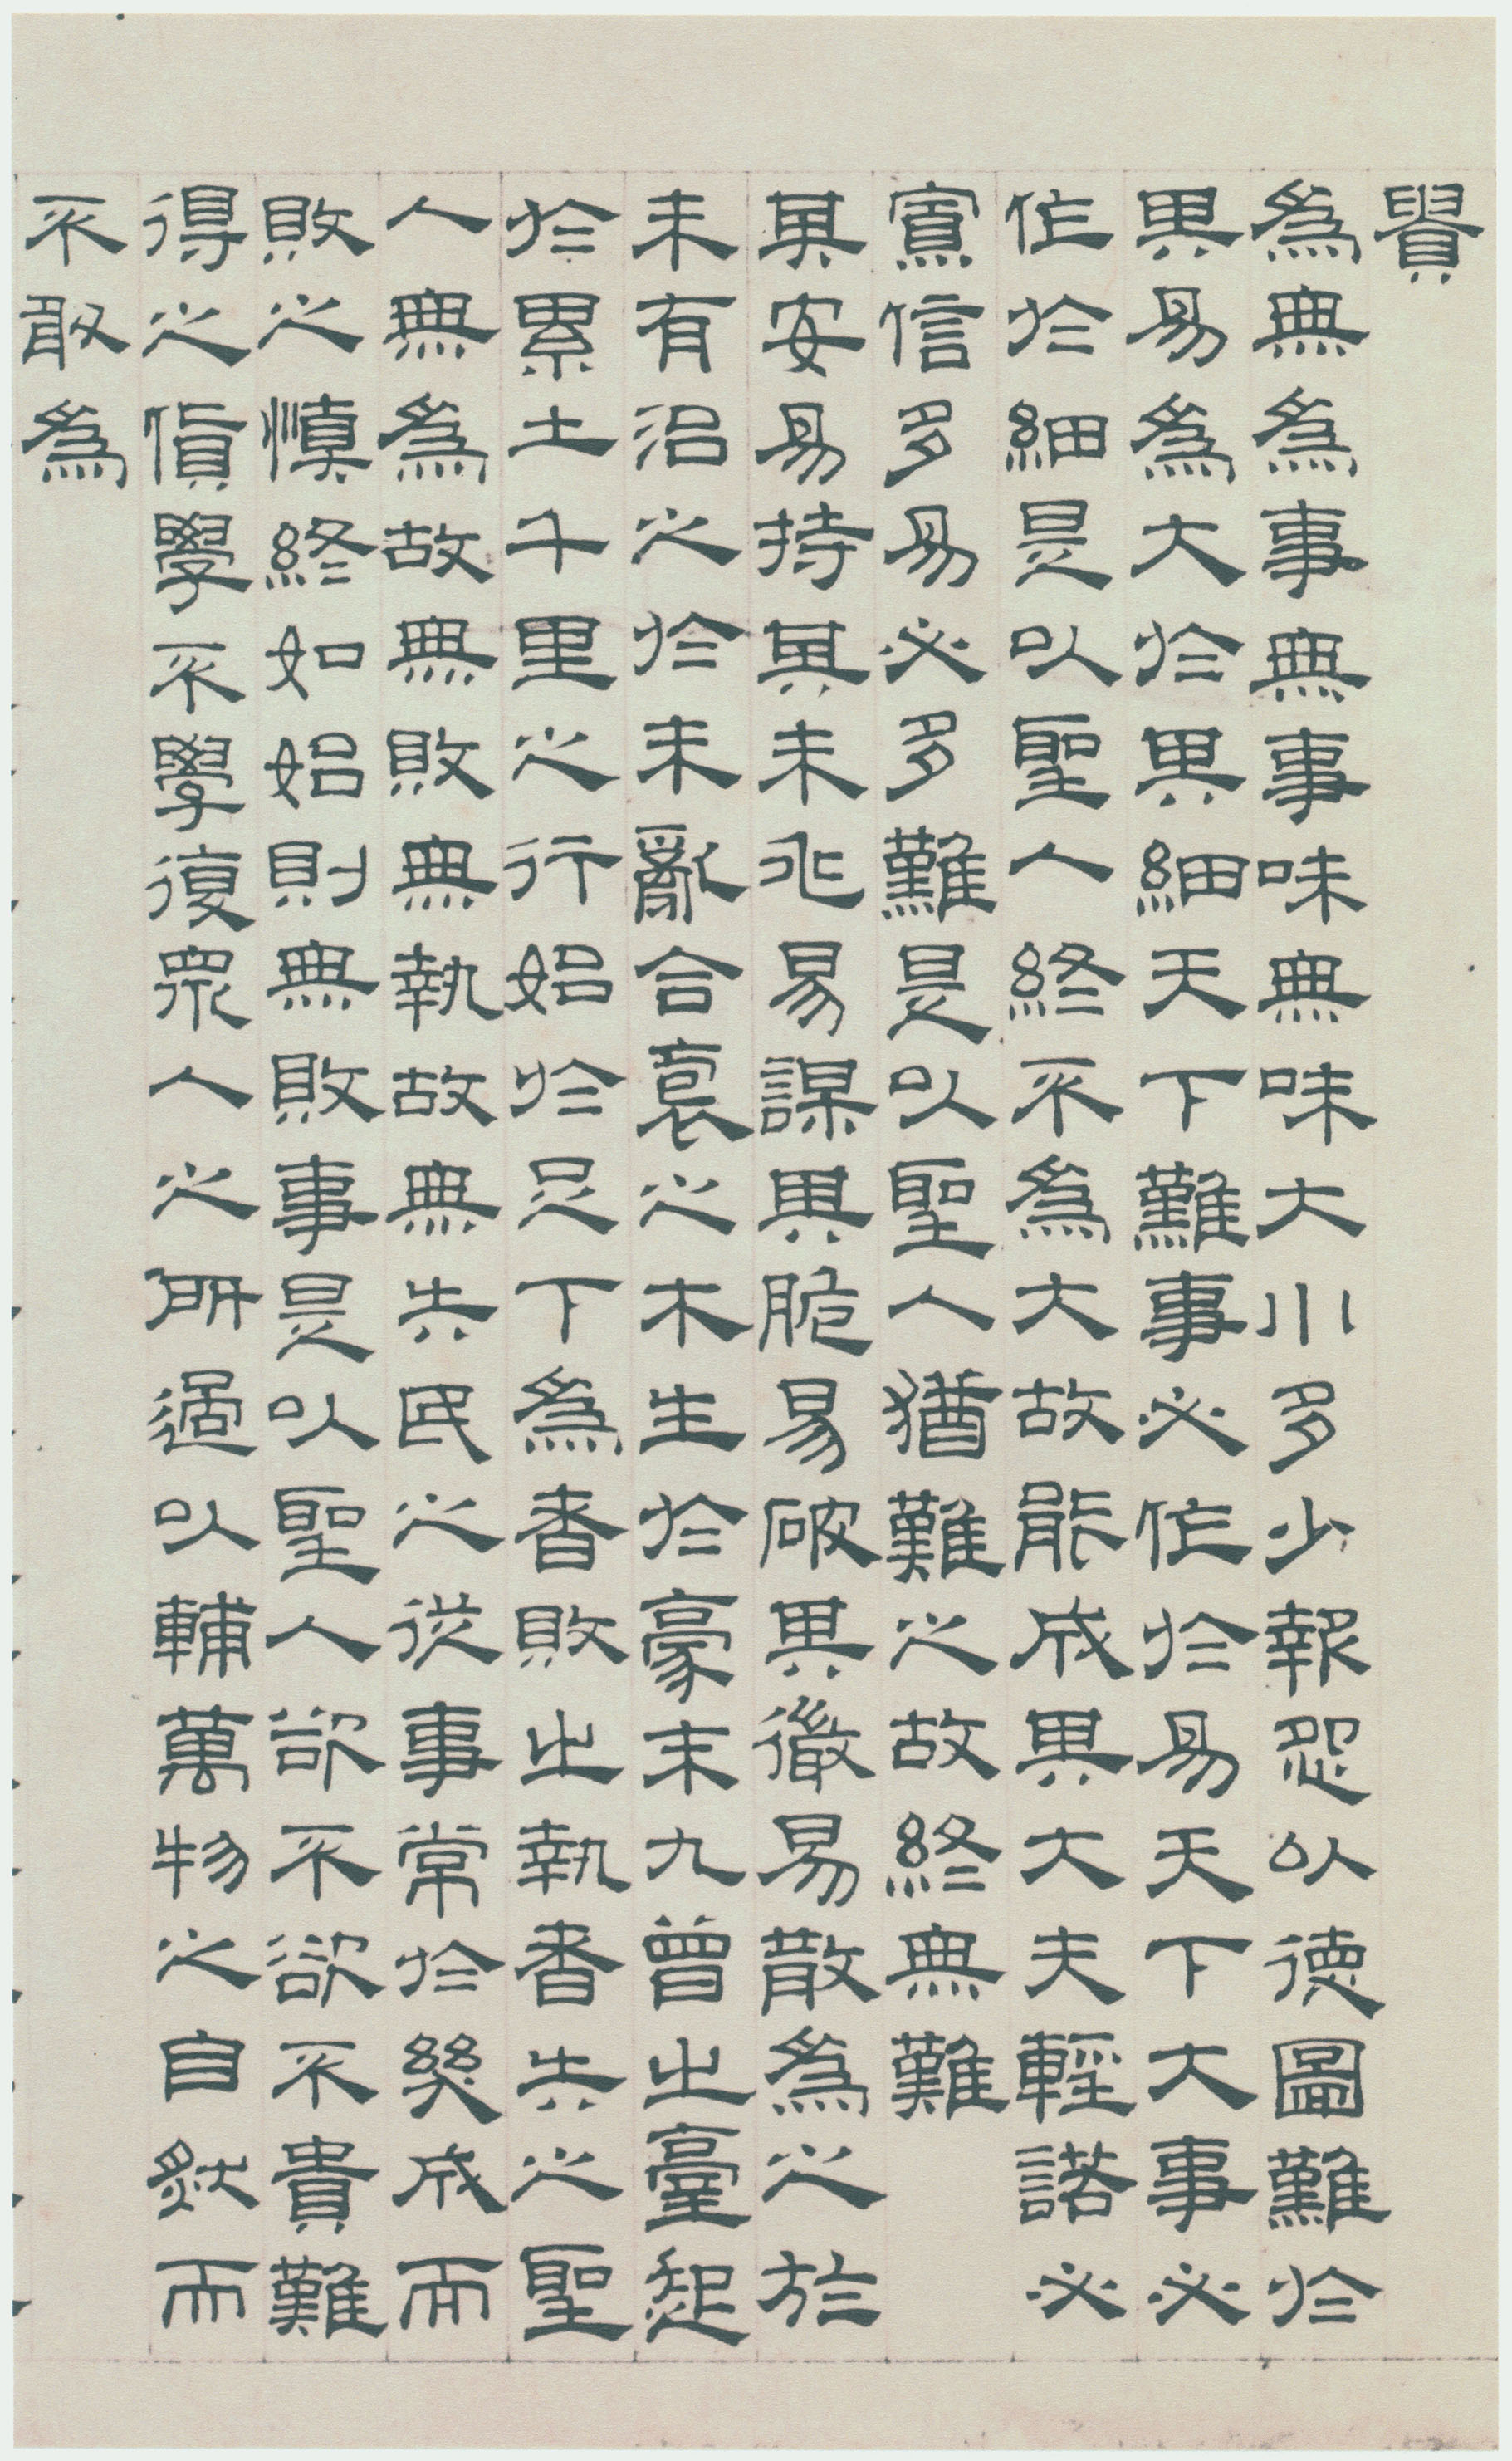 貴
為無為事無事味無味大小多少報怨以德圖難於
其易為大於其細天下難事必作於易天下大事必
作於細是以聖人終不為大故能成其大夫輕諾必
寡信多易必多難是以聖人猶難之故終無難
其安易持其未兆易謀其脆易破其微易散為之於
未有治之於未亂合裒之木生於豪末九曾之臺起
於累土千里之行始於足下為者敗之執者失之聖
人無為故無敗無執故無失民之從事常於幾成而
敗之慎終如始則無敗事是以聖人欲不欲不貴難
得之貨學不學復眾人之所過以輔萬物之自然而
不敢為